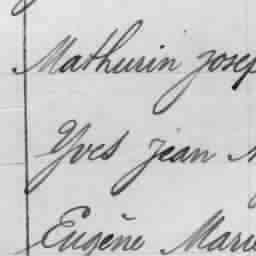 Mathurin Josep
Yves Jean
Eugène Marie